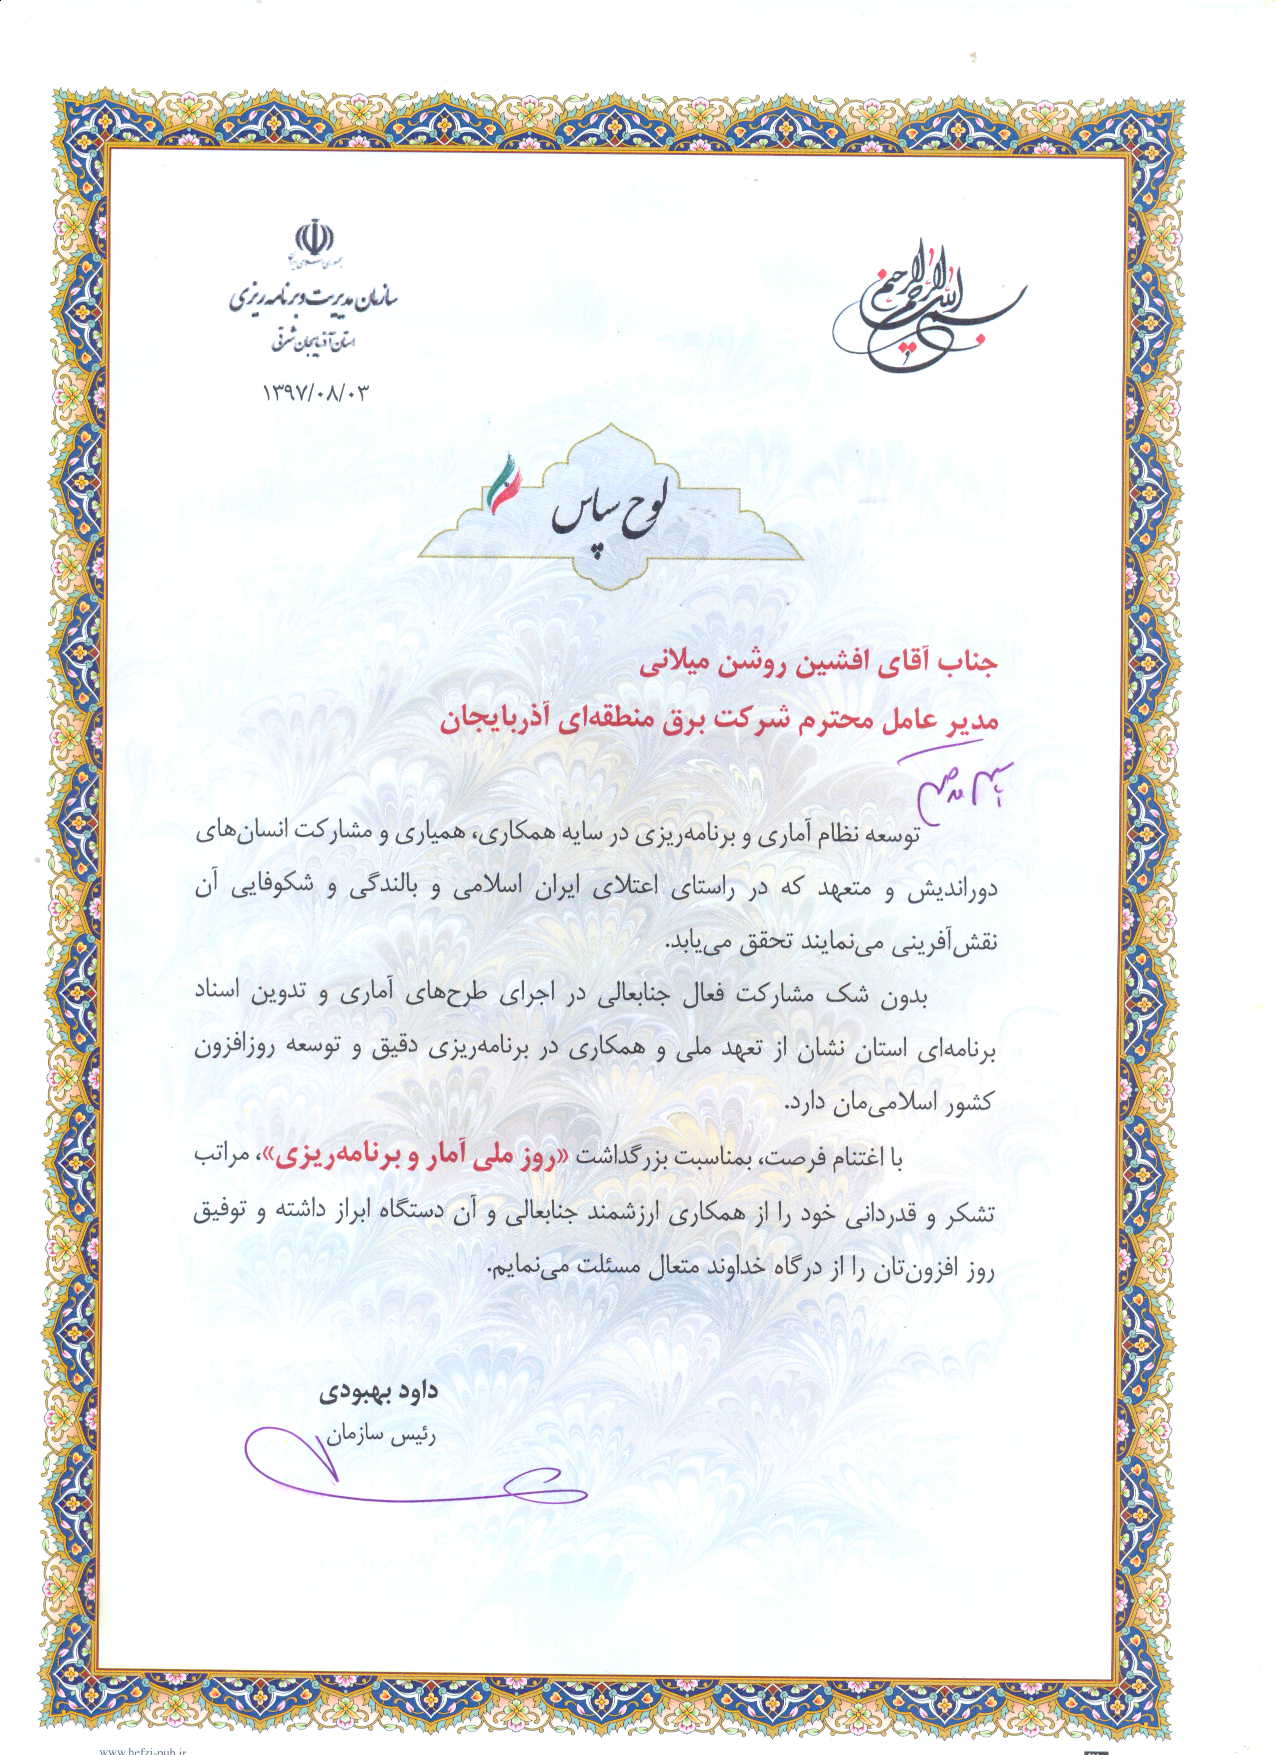 بسم الله الرحمن الرحیم
جمهوری اسلامی ایران
سازمان مدیریت و برنامه‌ریزی
استان آذربایجان شرقی
۱۳۹۷/۰۸/۰۳
لوح سپاس
جناب آقای افشین روشن میلانی
مدیر عامل محترم شرکت برق منطقه‌ای آذربایجان
توسعه نظام آماری و برنامه‌ریزی در سایه همکاری، همیاری و مشارکت انسان‌های
دوراندیش و متعهد که در راستای اعتلای ایران اسلامی و بالندگی و شکوفایی آن
نقش‌آفرینی می‌نمایند تحقق می‌یابد.
بدون شک مشارکت فعال جنابعالی در اجرای طرح‌های آماری و تدوین اسناد
برنامه‌ای استان نشان از تعهد ملی و همکاری در برنامه‌ریزی دقیق و توسعه روزافزون
کشور اسلامی‌مان دارد.
با اغتنام فرصت، بمناسبت بزرگداشت «روز ملی آمار و برنامه‌ریزی»، مراتب
تشکر و قدردانی خود را از همکاری ارزشمند جنابعالی و آن دستگاه ابراز داشته و توفیق
روز افزون‌تان را از درگاه خداوند متعال مسئلت می‌نمایم.
داود بهبودی
رئیس سازمان
www.hefzi-pub.ir